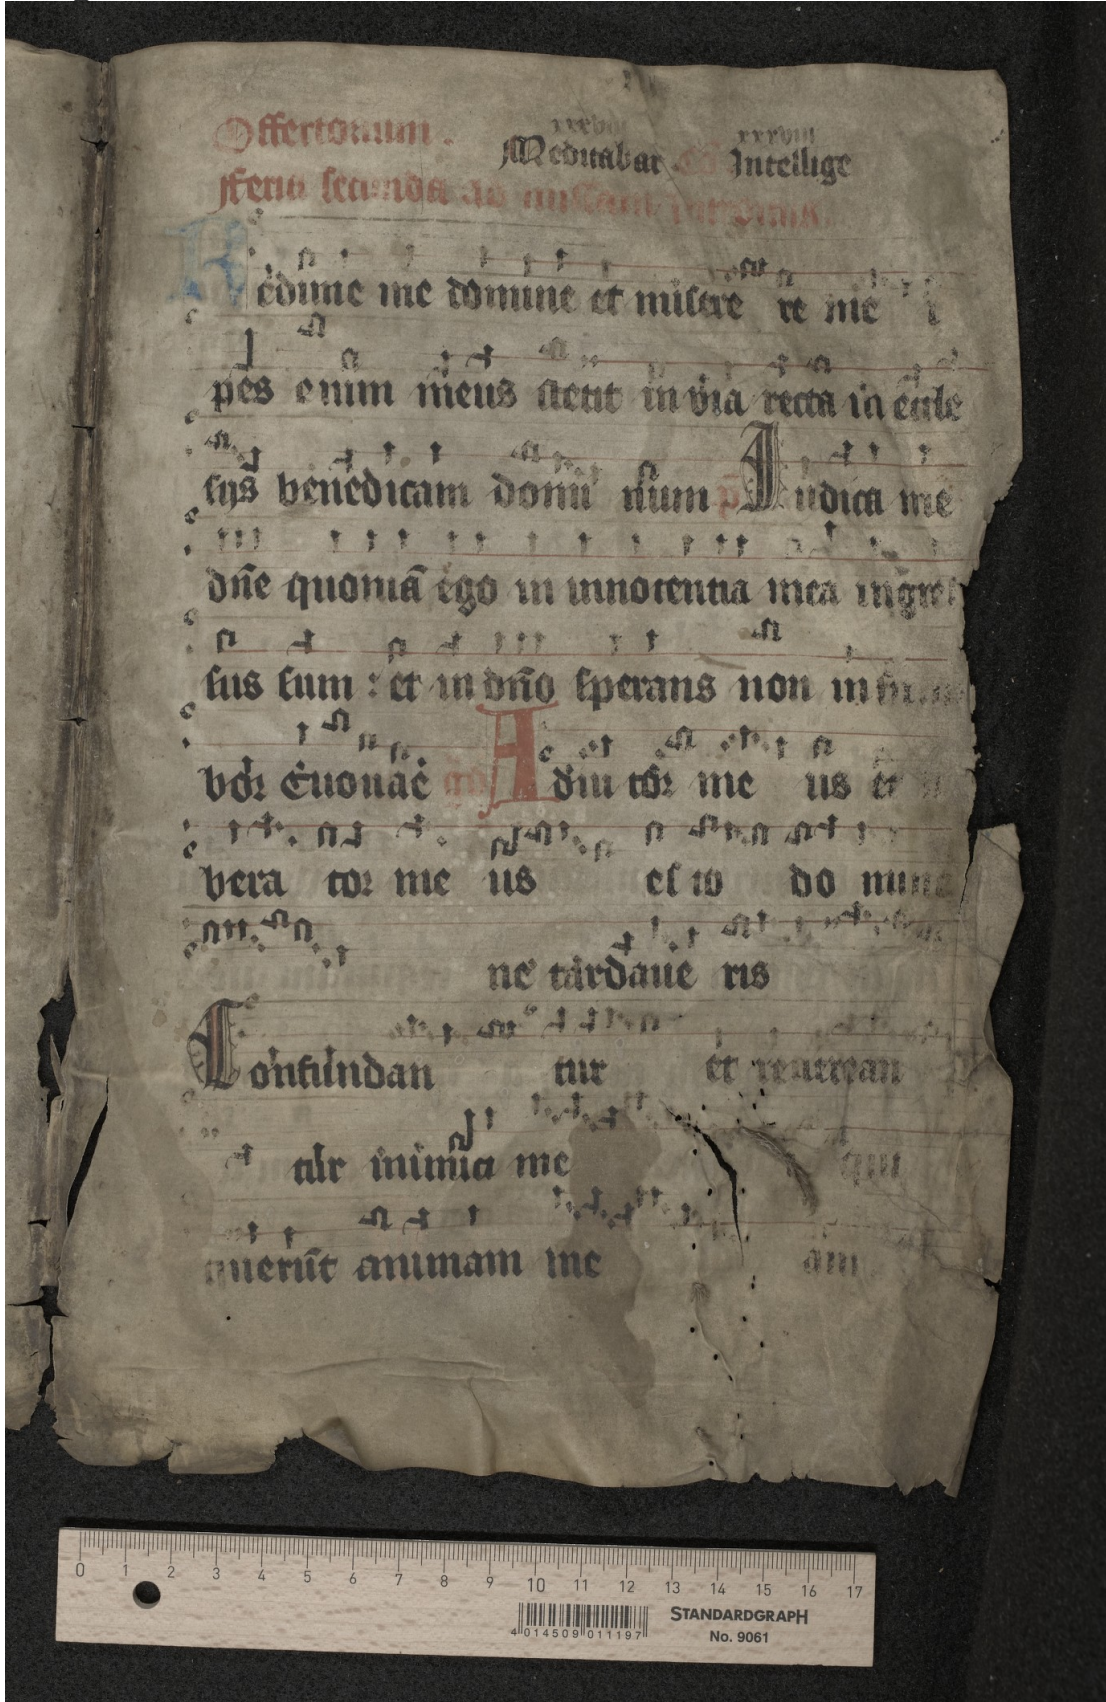 Offertorium. xxxviii Meditabar cō xxxviii Intellige
Feria secunda ad missam
Redime me domine et misere re me i
pes enim meus stetit in via recta in eccle
sijs benedicam domī num p̄ Iudica me
dn̄e quoniā ego in innocentia mea ingres
sus sum : et in dn̄o sperans non in
bor Euouae Adiu tor me us et
bera tor me us es to do mine
ne tardaue ris
Confundan tur et reuerean
tur inimici me qui
querūt animam me am
0 1 2 3 4 5 6 7 8 9 10 11 12 13 14 15 16 17
4 014509 011197
STANDARDGRAPH
No. 9061